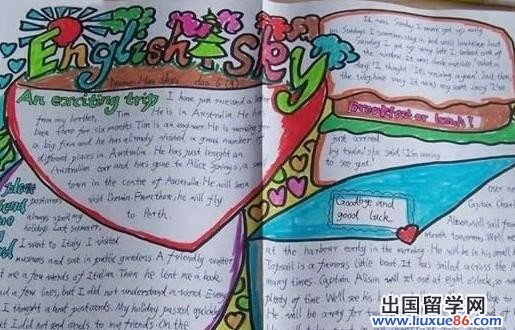 English Sky
An exciting trip
I have just received a letter
from my brother, Tim. He is in Australia. He has
been there for six months. Tim is an engineer. He is working for
a big firm and he has already visited a great number of
different places in Australia. He has just bought an
Australian car and has gone to Alice Springs, a small
town in the centre of Australia. He will soon
visit Darwin. From there, he will fly
to Perth.
Please
send
me
postcards
always spoil my
holidays. Last summer,
I went to Italy. I visited
museums and sat in public gardens. A friendly waiter
taught me a few words of Italian. Then he lent me a book.
I read a few lines, but I did not understand a word. Every
day I thought about postcards. My holiday passed quickly,
but I did not send cards to my friends. On the
It was Sunday. I never get up early
on Sundays. I sometimes stay in bed until lunchtime. Last
Sunday I got up very late. I looked out of
the window. It was dark outside. 'What a
day!' I thought. 'It's raining again.' Just then,
the telephone rang. It was my aunt Lucy. 'I've
Breakfast or lunch!
just arrived
by train,' she said. 'I'm coming
to see you.'
Goodbye and
good luck
Captain Charles
Alison will sail from
Portsmouth tomorrow. We'll meet
at the harbour early in the morning. He will be in his small
Topsail is a famous little boat. It has sailed across the
many times. Captain Alison will set out at eight o'clock, so
plenty of time. We'll see his
He will be away for
出国留学网
www.liuxue86.com